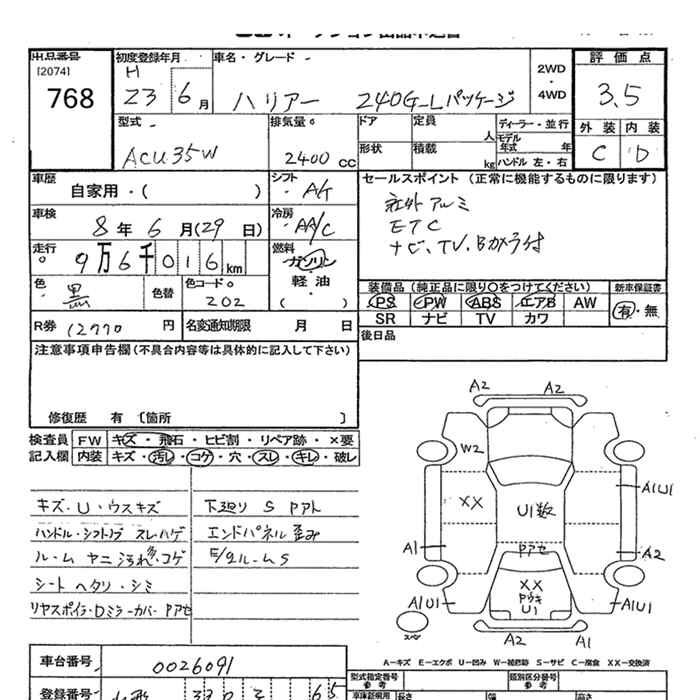 出品番号
[2074]
768
初度登録年月
H
23 6月
車名・グレード
ハリアー 240G-Lパッケージ
2WD
・
4WD
評価点
3.5
外装 内装
C D
型式
ACU35W
排気量
2400 cc
ドア 定員 人
形状 積載 kg
ディーラー・並行
モデル年式 年
ハンドル 左・右
車歴
自家用・( )
シフト
A/T
車検
8年 6月(29日)
冷房
AA/C
走行
9万6千016km
燃料
ガソリン
軽油
( )
色
黒
色替
色コード
202
R券 12770 円
名変通知期限 月 日
セールスポイント(正常に機能するものに限ります)
社外アルミ
ETC
ナビ、TV、Bカメラ付
装備品(純正品に限り○をつけてください)
PS PW ABS エアB AW
SR ナビ TV カワ
新車保証書
有・無
後日品
注意事項申告欄(不具合内容等は具体的に記入して下さい)
修復歴 有〔箇所 〕
検査員記入欄
FW キズ・飛石・ヒビ割・リペア跡・×要
内装 キズ・汚レ・コゲ・穴・スレ・キレ・破レ
キズ・U・ウスキズ
ハンドル・シフトノブ スレ・ハゲ
ルーム ヤニ 汚れ多・コゲ
シート ヘタリ・シミ
リヤスポイラ・Dミラーカバー Pアセ
下廻り S Pアト
エンドパネル歪み
E/gルームS
A2 A2
W2
XX
U1数
A1U1
A1
Pアセ
A2
XX
Pウキ
U1
A1U1
A1U1
スペア
A2
A1
A…キズ E…エクボ U…凹み W…補修跡 S…サビ C…腐食 XX…交換済
車台番号 0026091
登録番号
型式指定番号
参考
類別区分番号
参考
車庫証明用
長さ
幅
高さ